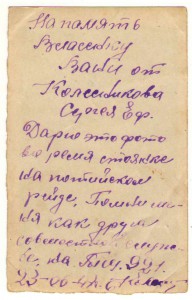 На память
Власенку
Васи от
Колесникова
Сергея Еф.
Дарю это фото
во время стоянке
на потийском
рейде. Помни ме-
ня как друга
совместной служ-
бе, на
23-